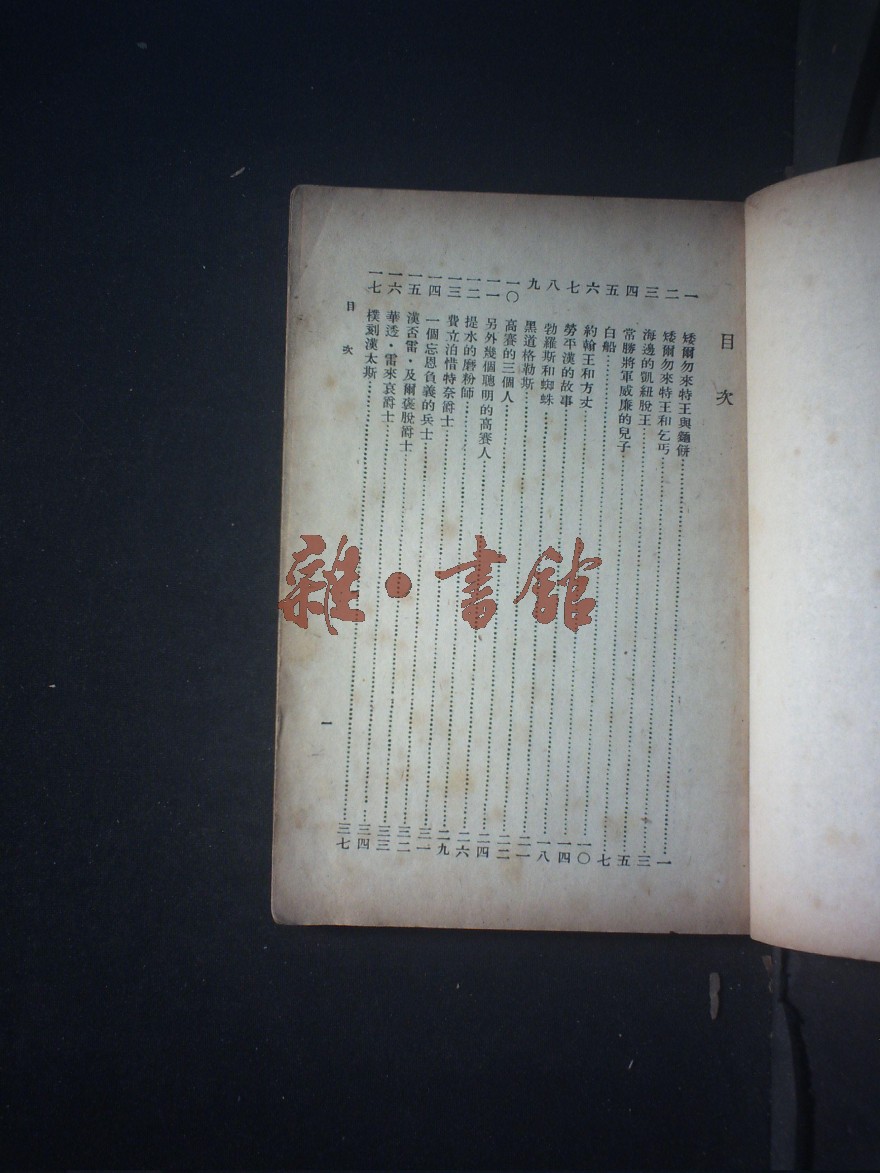 目次
一 矮爾勿來特王與麵餅……一
二 矮爾勿來特王和乞丐……三
三 海邊的凱紐脫王……五
四 常勝將軍威廉的兒子……七
五 白船……一〇
六 約翰王和方丈……一四
七 勞平漢的故事……一八
八 勃羅斯和蜘蛛……二一
九 黑道格勒斯……二二
一〇 高賽的三個人……二四
一一 另外幾個聰明的高賽人……二六
一二 提水的磨粉師……二九
一三 費立泊惜特奈爵士……三一
一四 一個忘恩負義的兵士……三二
一五 漢否雷·及爾褒脫爵士……三三
一六 華透·雷來哀爵士……三四
一七 樸刻漢太斯……三七
目次
一
雜·書館